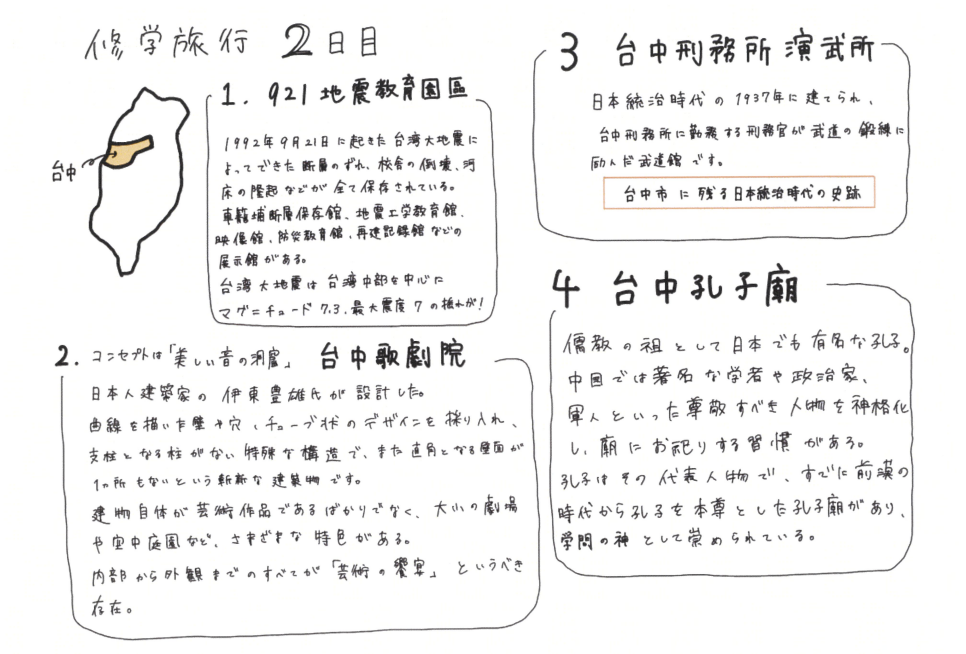 修学旅行 2日目
台中
1. 921地震教育園區
1992年9月21日に起きた台湾大地震に
よってできた断層のずれ、校舎の倒壊、河
床の隆起などが全て保存されている。
車籠埔断層保存館、地震工学教育館、
映像館、防災教育館、再建記録館などの
展示館がある。
台湾大地震は台湾中部を中心に
マグニチュード7.3、最大震度7の揺れが!
2. コンセプトは「美しい音の洞窟」 台中歌劇院
日本人建築家の伊東豊雄氏が設計した。
曲線を描いた壁や穴、チューブ状のデザインを採り入れ、
支柱となる柱がない特殊な構造で、また直角となる壁面が
1ヵ所もないという斬新な建築物です。
建物自体が芸術作品であるばかりでなく、大小の劇場
や空中庭園など、さまざまな特色がある。
内部から外観までのすべてが「芸術の饗宴」というべき
存在。
3 台中刑務所演武所
日本統治時代の1937年に建てられ、
台中刑務所に勤務する刑務官が武道の鍛練に
励んだ武道館です。
台中市に残る日本統治時代の史跡
4 台中孔子廟
儒教の祖として日本でも有名な孔子。
中国では著名な学者や政治家、
軍人といった尊敬すべき人物を神格化
し、廟にお祀りする習慣がある。
孔子はその代表人物で、すでに前漢の
時代から孔子を本尊とした孔子廟があり、
学問の神として崇められている。